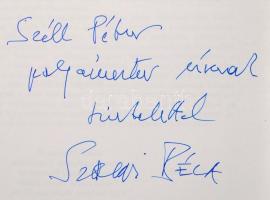 Széll Péter
polgármester úrnak
tisztelettel
Szilágyi Béla